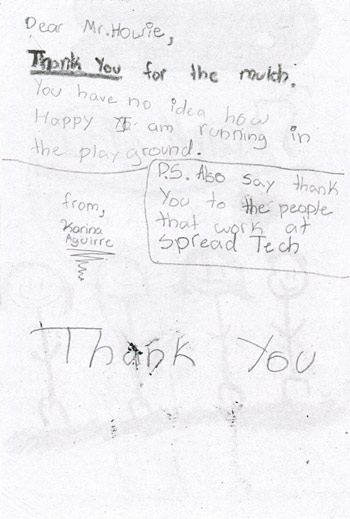 Dear Mr. Howie,
Thank You for the mulch.
You have no idea how
Happy I am running in
the playground.
P.S. Also say thank
You to the people
that work at
Spread Tech
from,
Karina
Aguirre
Thank You